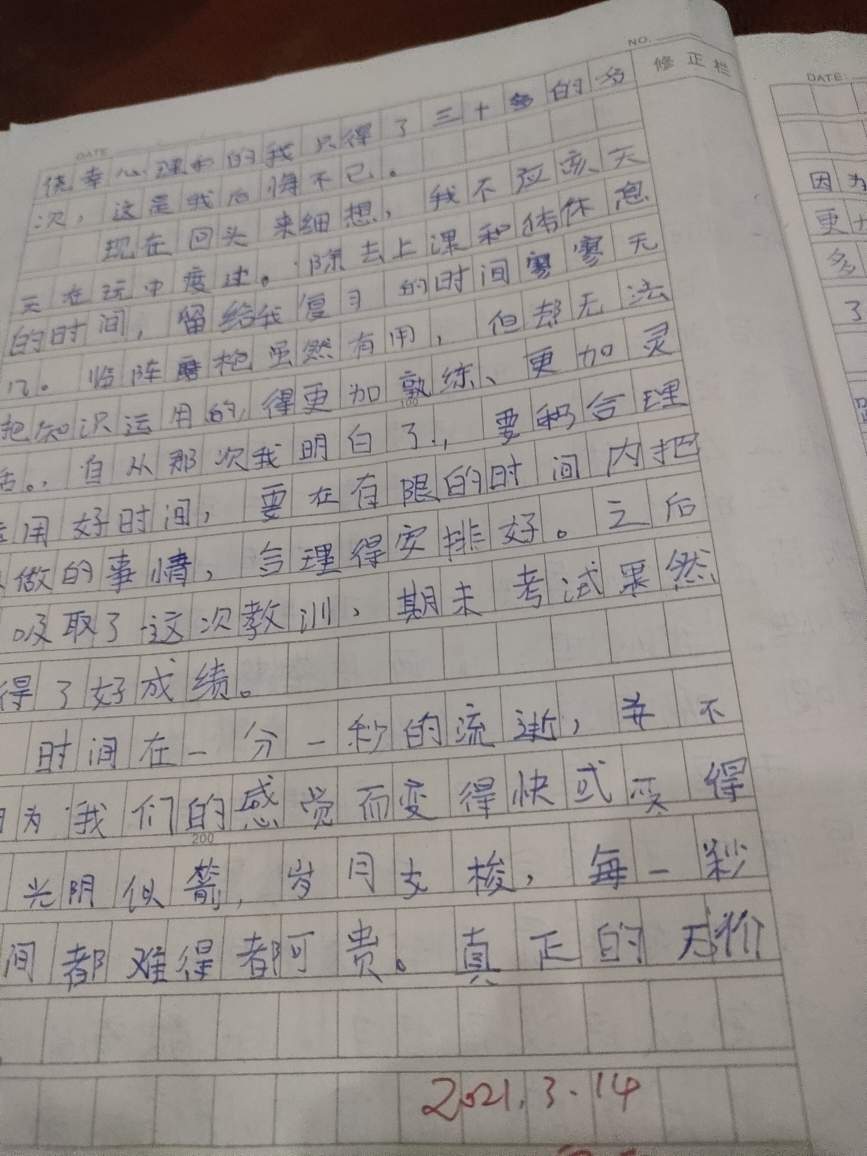 NO.
修正栏
DATE
侥幸心理的我只得了三十多的名
次，这是我后悔不已。
现在回头来细想，我不应该天
天在玩中度过。除去上课和休息
的时间，留给我复习的时间寥寥无
几。临阵磨枪虽然有用，但却无法
把知识运用的得更加熟练、更加灵
活。，自从那次我明白了，要合理
运用好时间，要在有限的时间内把
做的事情，合理得安排好。之后
吸取了这次教训，期末考试果然
得了好成绩。
时间在一分一秒的流逝，并不
因为我们的感觉而变得快或变得
光阴似箭，岁月如梭，每一秒
间都难得都可贵。真正的无价
100
200
2021.3.14
DATE
因为
更
多
了